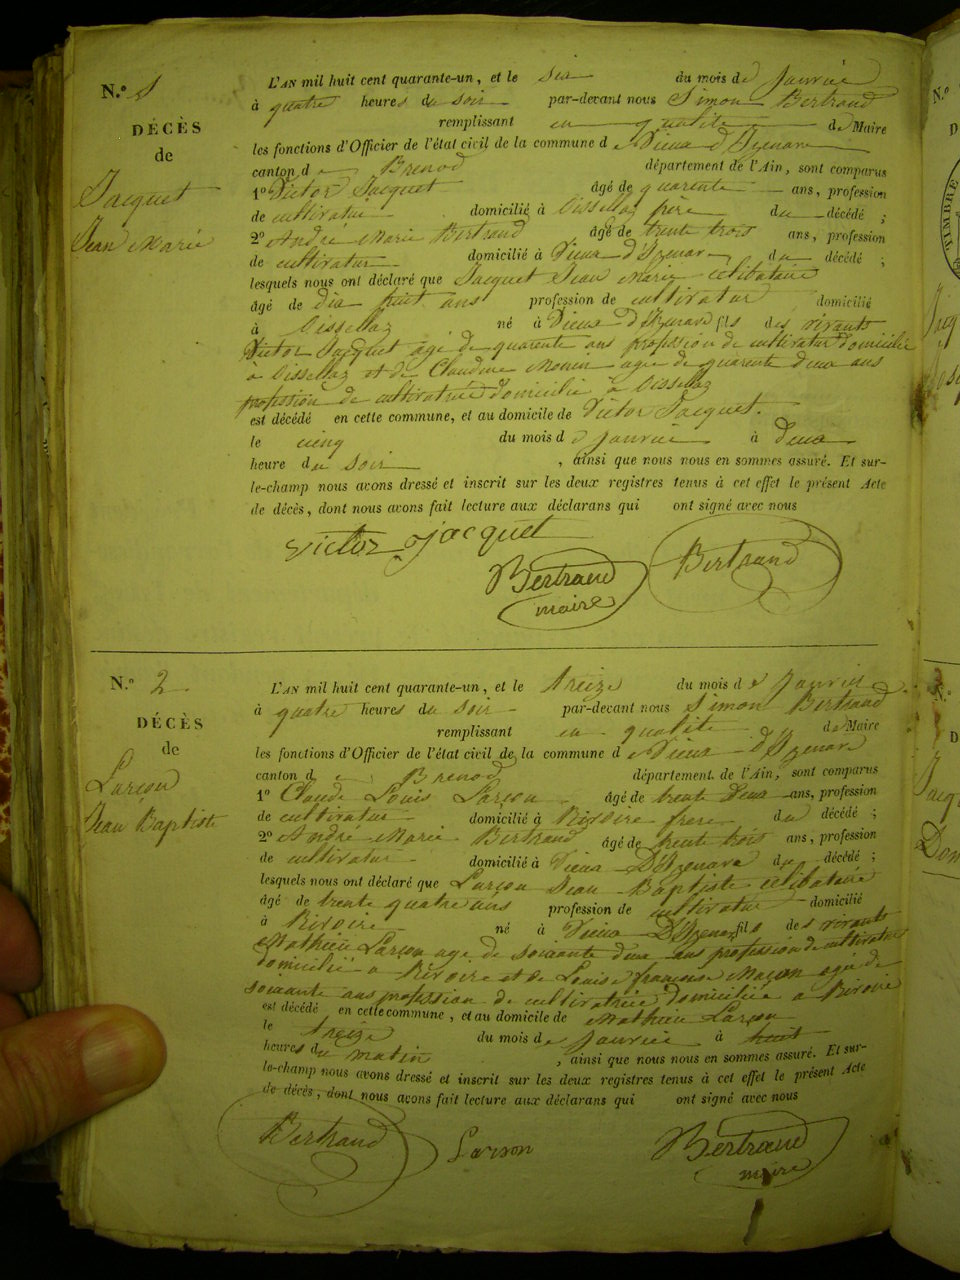 N.º 1
DÉCÈS
de
Jacquet
Jean Marie
L'AN mil huit cent quarante-un, et le six du mois de Janvié
à quatre heures du soir par-devant nous Simon Bertrand
remplissant en qualité de Maire
les fonctions d'Officier de l'état civil de la commune de Vieux d'Izenave
canton de Brenod département de l'Ain, sont comparus
1º Victor Jacquet âgé de quarente ans, profession
de cultivatur domicilié à Cissellaz père du décédé ;
2º André Marie Bertrand âgé de trente trois ans, profession
de cultivatur domicilié à Vieux d'Izenave du décédé ;
lesquels nous ont déclaré que Jacquet Jean Marie célibataire
âgé de dix huit ans profession de cultivatur domicilié
à Cissellaz né à Vieux d'Izenave fils des vivants
Victor Jacquet âgé de quarente ans profession de cultivatur domicilié
à Cissellaz et de Claudine Monin agée de quarente deux ans
profession de cultivatrice domicilié à Cissellaz
est décédé en cette commune, et au domicile de Victor Jacquet.
le cinq du mois de Janvié à deux
heure du soir , ainsi que nous nous en sommes assuré. Et sur-
le-champ nous avons dressé et inscrit sur les deux registres tenus à cet effet le présent Acte
de décès, dont nous avons fait lecture aux déclarans qui ont signé avec nous
victor jacquet
Bertrand
Bertrand
maire
N.º 2
DÉCÈS
de
Larçon
Jean Baptiste
L'AN mil huit cent quarante-un, et le treize du mois de Janvié
à quatre heures du soir par-devant nous Simon Bertrand
remplissant en qualité de Maire
les fonctions d'Officier de l'état civil de la commune de Vieux d'Izenave
canton de Brenod département de l'Ain, sont comparus
1º Claude Louis Larçon âgé de trente deux ans, profession
de cultivatur domicilié à Rivoire frère du décédé ;
2º André Marie Bertrand âgé de trente trois ans, profession
de cultivatur domicilié à Vieux D'Izenave du décédé ;
lesquels nous ont déclaré que Larçon Jean Baptiste célibataire
âgé de trente quatre ans profession de cultivatur domicilié
à Rivoire né à Vieux D'Izenave fils des vivants
Mathieu Larçon age de soixante deux ans profession de cultivatur
domicilié a Rivoire et de Louise françoise Maçon agée de
soixante ans profession de cultivatrice domiciliée a Rivoire
est décédé en cette commune, et au domicile de Mathieu Larçon
le treize du mois de Janvié à huit
heures du matin , ainsi que nous nous en sommes assuré. Et sur-
le-champ nous avons dressé et inscrit sur les deux registres tenus à cet effet le présent Acte
de décès, dont nous avons fait lecture aux déclarans qui ont signé avec nous
Bertrand Larson Bertrand
maire
N.º
TIMBRE
N.º